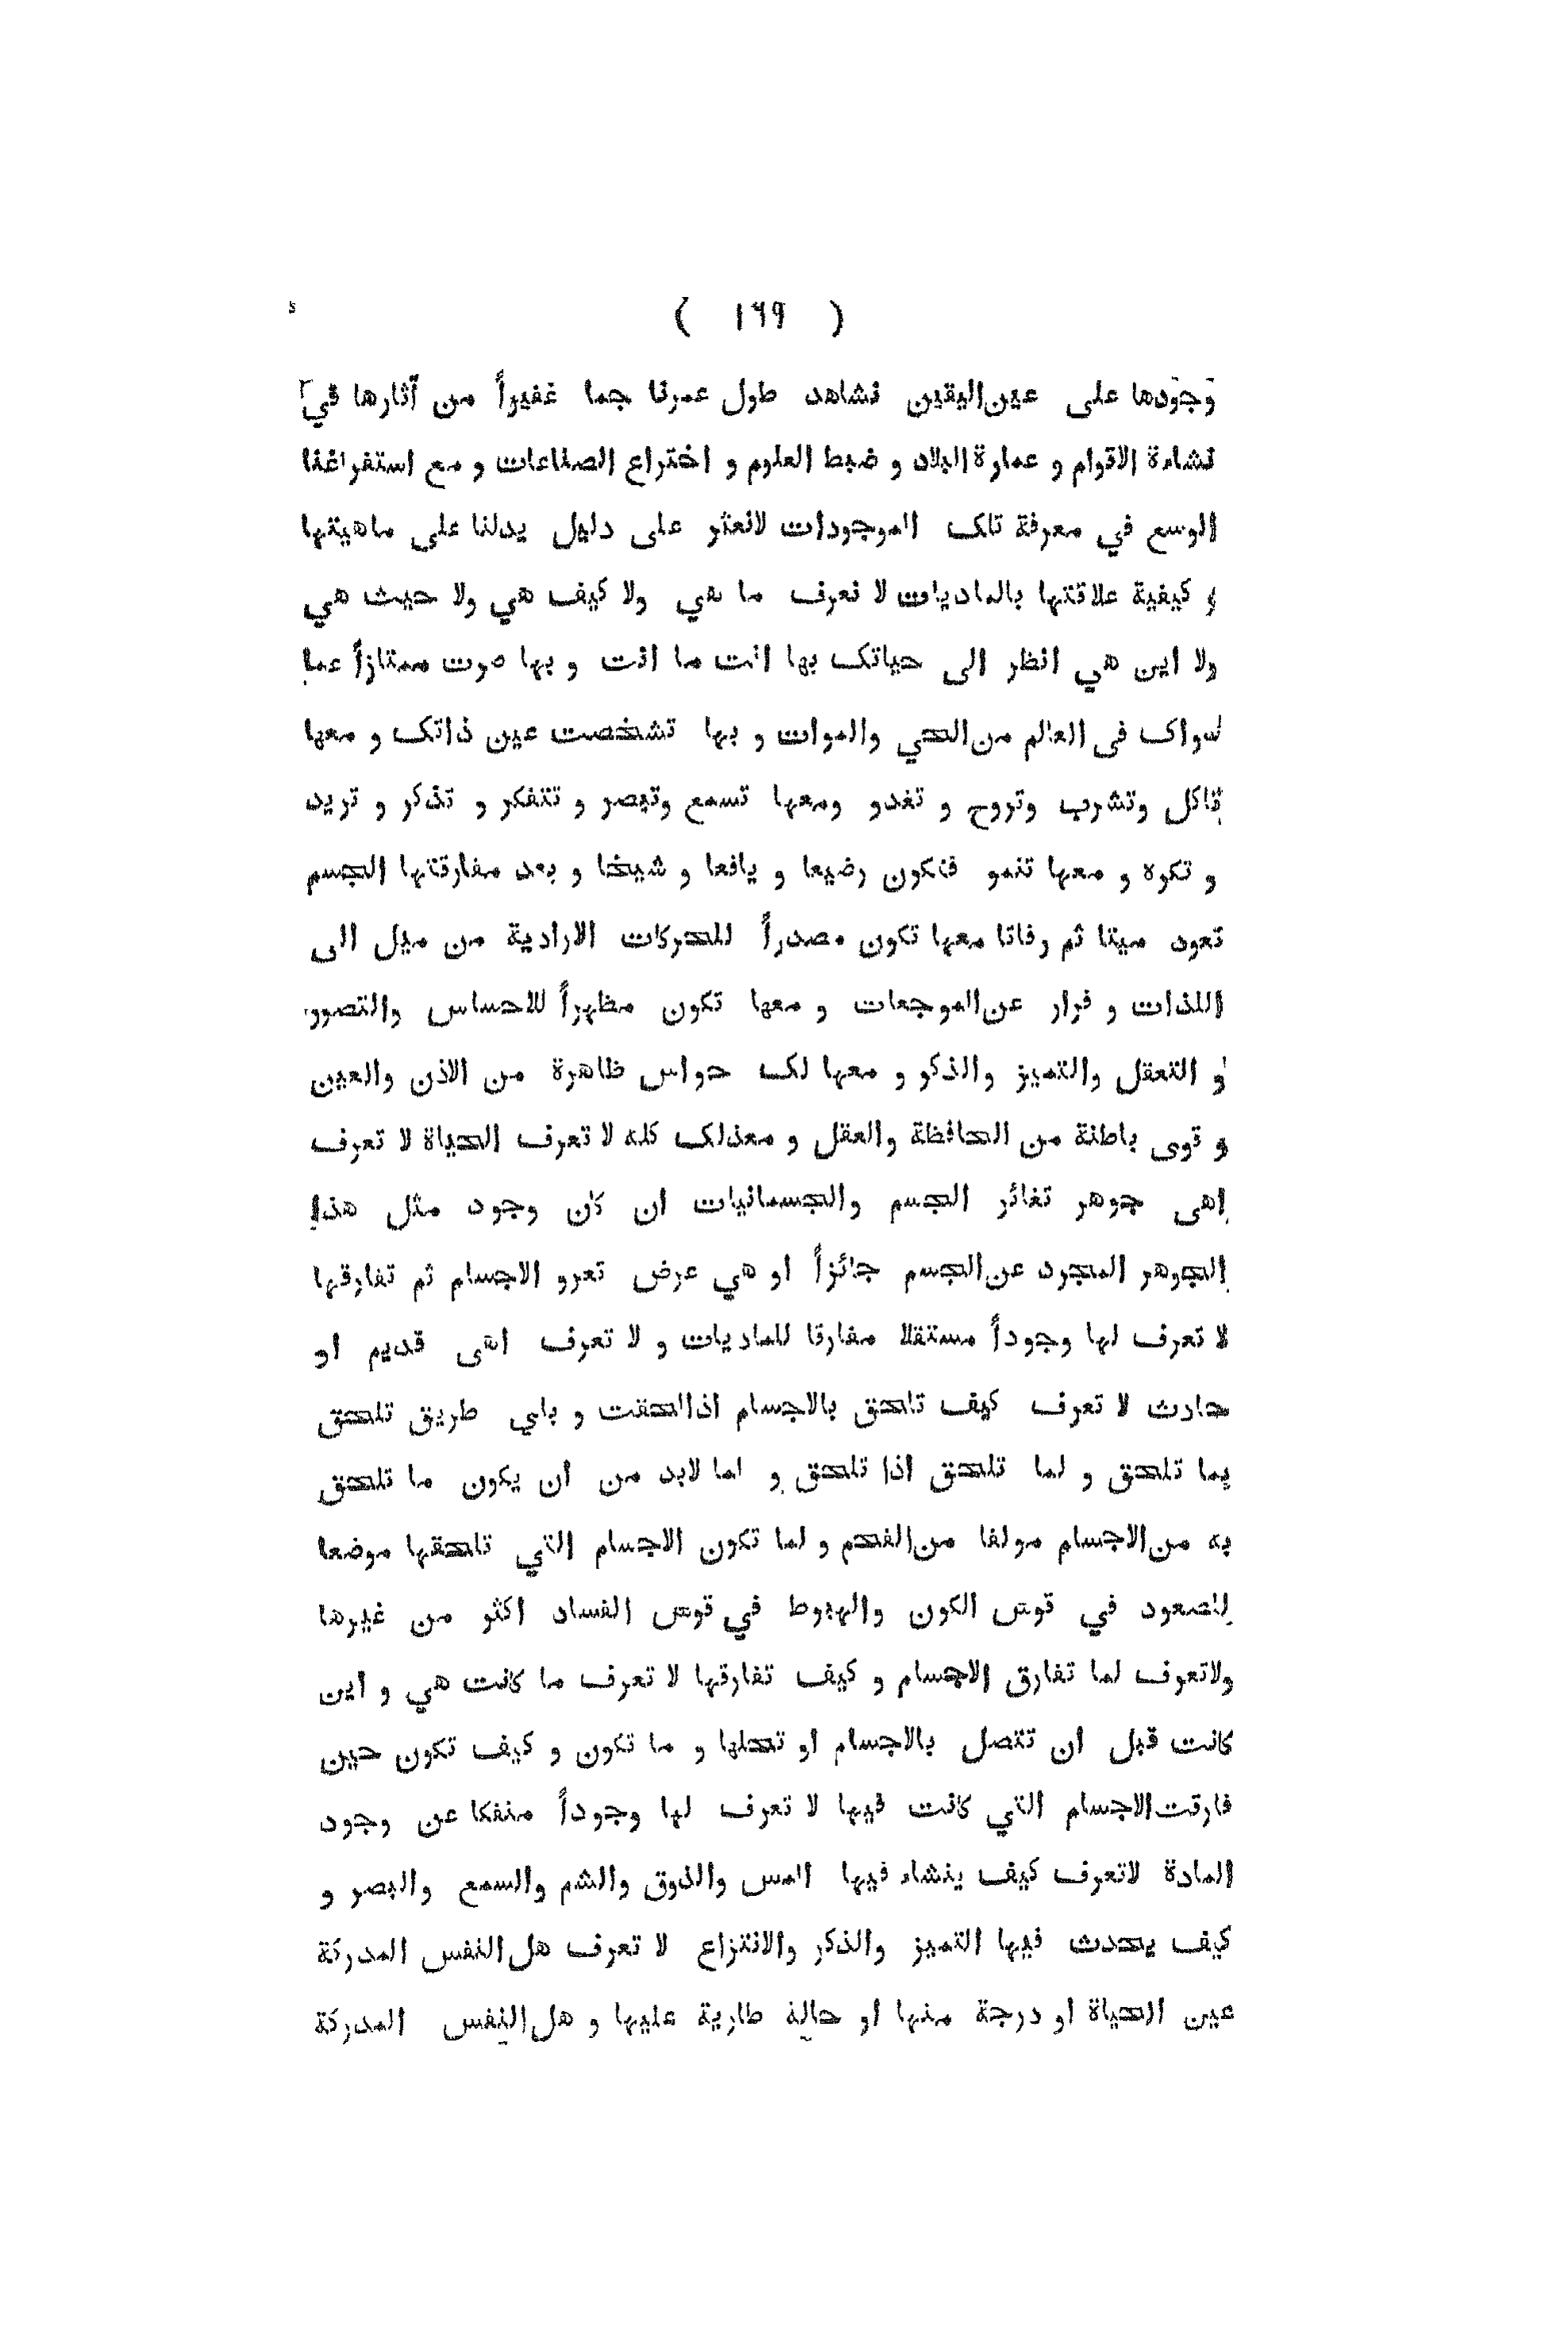 ( ١٦٩ )
وجودها على عين اليقين نشاهد طول عمرنا جما غفيراً من آثارها في
نشاءة الاقوام و عمارة البلاد و ضبط العلوم و اختراع الصناعات و مع استفراغنا
الوسع في معرفة تلك الموجودات لانعثر على دليل يدلنا على ماهيتها
و كيفية علاقتها بالماديات لا نعرف ما هي ولا كيف هي ولا حيث هي
ولا اين هي انظر الى حياتك بها انت ما انت و بها صرت ممتازاً عما
سواك فى العالم من الحي والموات و بها تشخصت عين ذاتك و معها
تاكل وتشرب وتروح و تغدو ومعها تسمع وتبصر و تتفكر و تذكر و تريد
و تكره و معها تنمو فتكون رضيعا و يافعا و شيخا و بعد مفارقتها الجسم
تعود ميتا ثم رفاتا معها تكون مصدراً للحركات الارادية من ميل الى
اللذات و فرار عن الموجعات و معها تكون مظهراً للاحساس والتصور
و التعقل والتميز والذكر و معها لك حواس ظاهرة من الاذن والعين
و قوى باطنة من الحافظة والعقل و معذلك كله لا تعرف الحياة لا تعرف
اهى جوهر تغائر الجسم والجسمانيات ان كان وجود مثل هذا
الجوهر المجرد عن الجسم جائزاً او هي عرض تعرو الاجسام ثم تفارقها
لا تعرف لها وجوداً مستقلا مفارقا للماديات و لا تعرف اهى قديم او
حادث لا تعرف كيف تلحق بالاجسام اذا الحقت و باي طريق تلحق
بما تلحق و لما تلحق اذا تلحق و لما لابد من ان يكون ما تلحق
به من الاجسام مولفا من الفحم و لما تكون الاجسام التي تلحقها موضعا
للصعود في قوس الكون والهبوط في قوس الفساد اكثر من غيرها
ولاتعرف لما تفارق الاجسام و كيف تفارقها لا تعرف ما كانت هي و اين
كانت قبل ان تتصل بالاجسام او تحلها و ما تكون و كيف تكون حين
فارقت الاجسام التي كانت فيها لا تعرف لها وجوداً منفكا عن وجود
المادة لاتعرف كيف ينشاء فيها المس والذوق والشم والسمع والبصر و
كيف يحدث فيها التميز والذكر والانتزاع لا تعرف هل النفس المدركة
عين الحياة او درجة منها او حالة طارية عليها و هل النفس المدركة